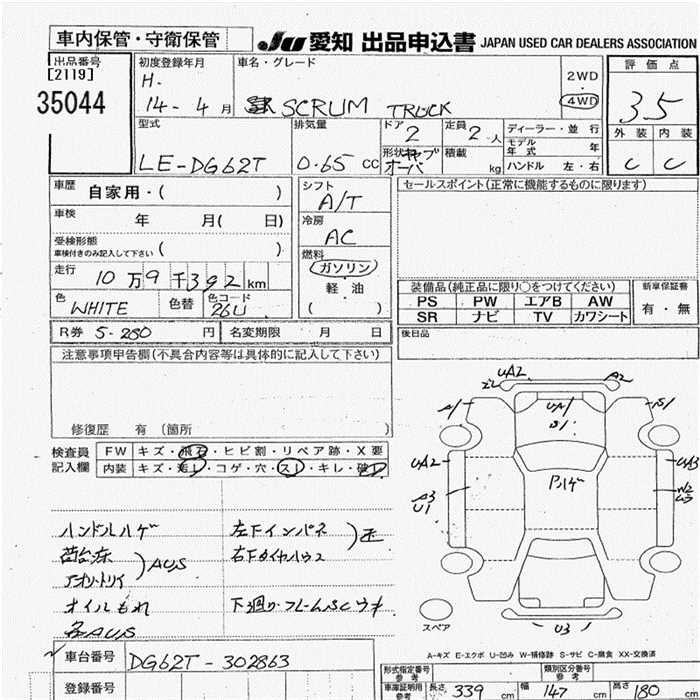 車内保管・守衛保管
JU 愛知 出品申込書 JAPAN USED CAR DEALERS ASSOCIATION
出品番号
[2119]
35044
初度登録年月
H.
14 - 4 月
車名・グレード
SCRUM TRUCK
2WD
4WD
評価点
3.5
外装 内装
C C
型式
LE-DG62T
排気量
0.65 CC
ドア
2
定員
2 人
形状 キャブオーバ
積載
kg
ディーラー・並行
モデル年式 年
ハンドル 左・右
車歴 自家用・( )
車検 年 月( 日)
受検形態
車検付きのみ記入して下さい ( )
走行
10 万 9 千 392 km
色
WHITE
色替
色コード
26U
シフト
A/T
冷房
AC
燃料
ガソリン
軽油
( )
セールスポイント(正常に機能するものに限ります)
装備品(純正品に限り○をつけてください)
PS PW エアB AW
SR ナビ TV カワシート
新車保証書
有・無
後日品
R券 5-250 円
名変期限 月 日
注意事項申告欄(不具合内容等は具体的に記入して下さい)
修復歴 有 (箇所 )
検査員
記入欄
FW キズ・飛石・ヒビ割・リペア跡・X要
内装 キズ・汚レ・コゲ・穴・スレ・キレ・破レ
ハンドルハゲ
AUS
オイルもれ
各AUS
左下インパネ
下廻り・フレームSCウキ
UA2
A2
A1
UA1
S1
S1
UA2
A3
U1
UA3
W2
U3
スペア
A-キズ E-エクボ U-凹み W-補修跡 S-サビ C-腐食 XX-交換済
車台番号 DG62T-302863
登録番号
形式指定番号
参考
類別区分番号
参考
車庫証明用
参考
長さ 339 cm 幅 147 cm 高さ 180 cm